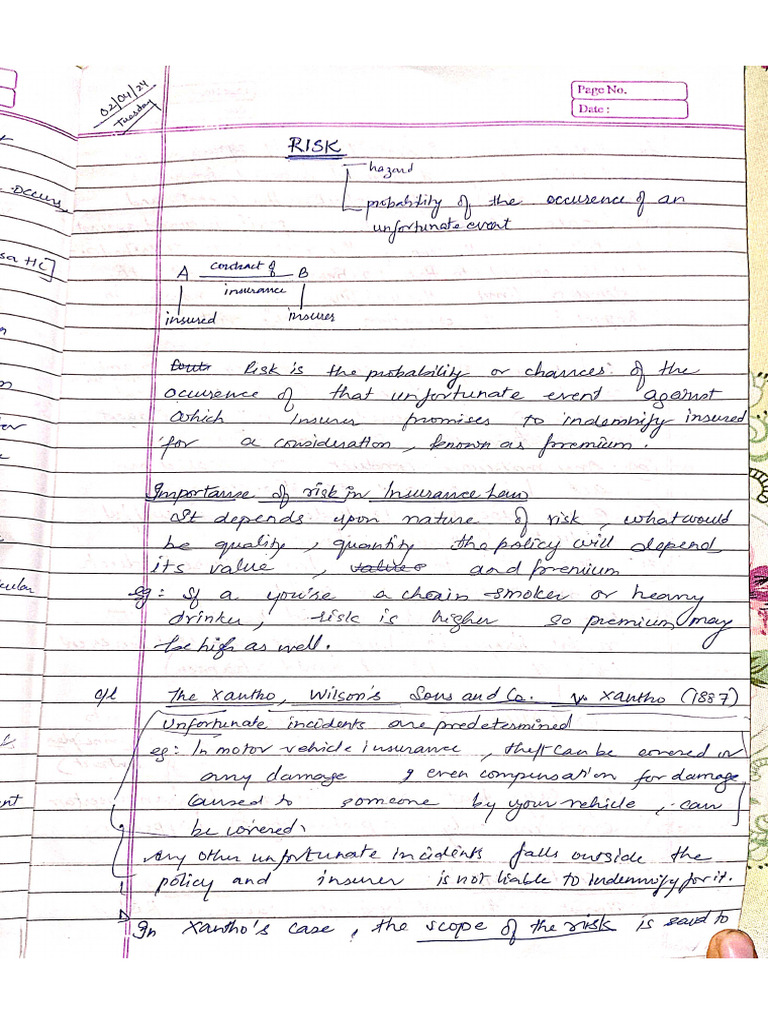 02/04/24
Tuesday
Page No.
Date :
RISK
hazard
probability of the occurence of an
unfortunate event
A contract of B
insurance
insured insurer
Risk is the probability or chances of the
occurence of that unfortunate event against
which Insurer promises to indemnify insured
for a consideration, known as premium.
Importance of risk in Insurance Law
It depends upon nature of risk, what would
be quality, quantity the policy will depend
its value, values and premium
eg: If a you're a chain smoker or heavy
drinker, risk is higher so premium may
be high as well.
c/l The Xantho, Wilson's Sons and Co. v. Xantho (1887)
Unfortunate incidents are predetermined
eg: In motor vehicle insurance, theft can be covered or
any damage, even compensation for damage
caused to someone by your vehicle, can
be covered.
Any other unfortunate incidents falls outside the
policy and insurer is not liable to indemnify for it.
In Xantho's case, the scope of the risk is said to
occurs,
HC]